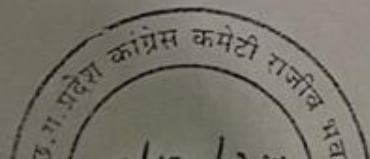 छ.ग. प्रदेश कांग्रेस कमेटी राजीव भव